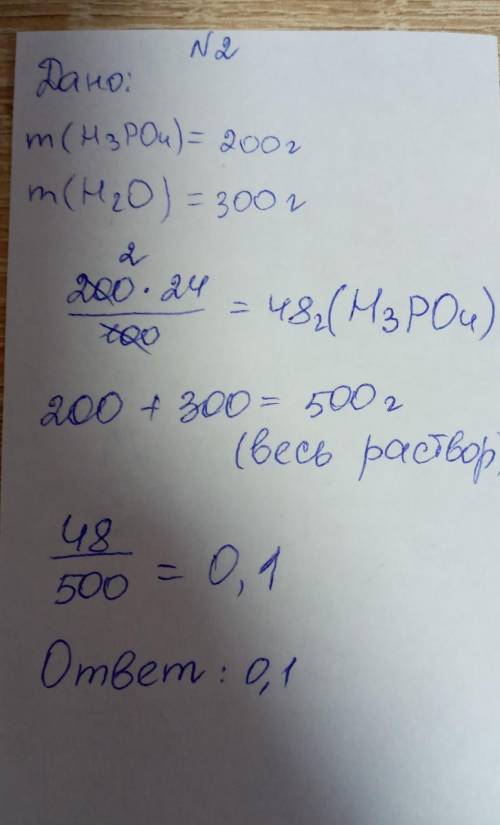 N2
Дано:
m(H₃PO₄) = 200г
m(H₂O) = 300г
2
200 · 24
100
= 48г(H₃PO₄)
200 + 300 = 500г
(весь раствор)
48
500
= 0,1
Ответ: 0,1